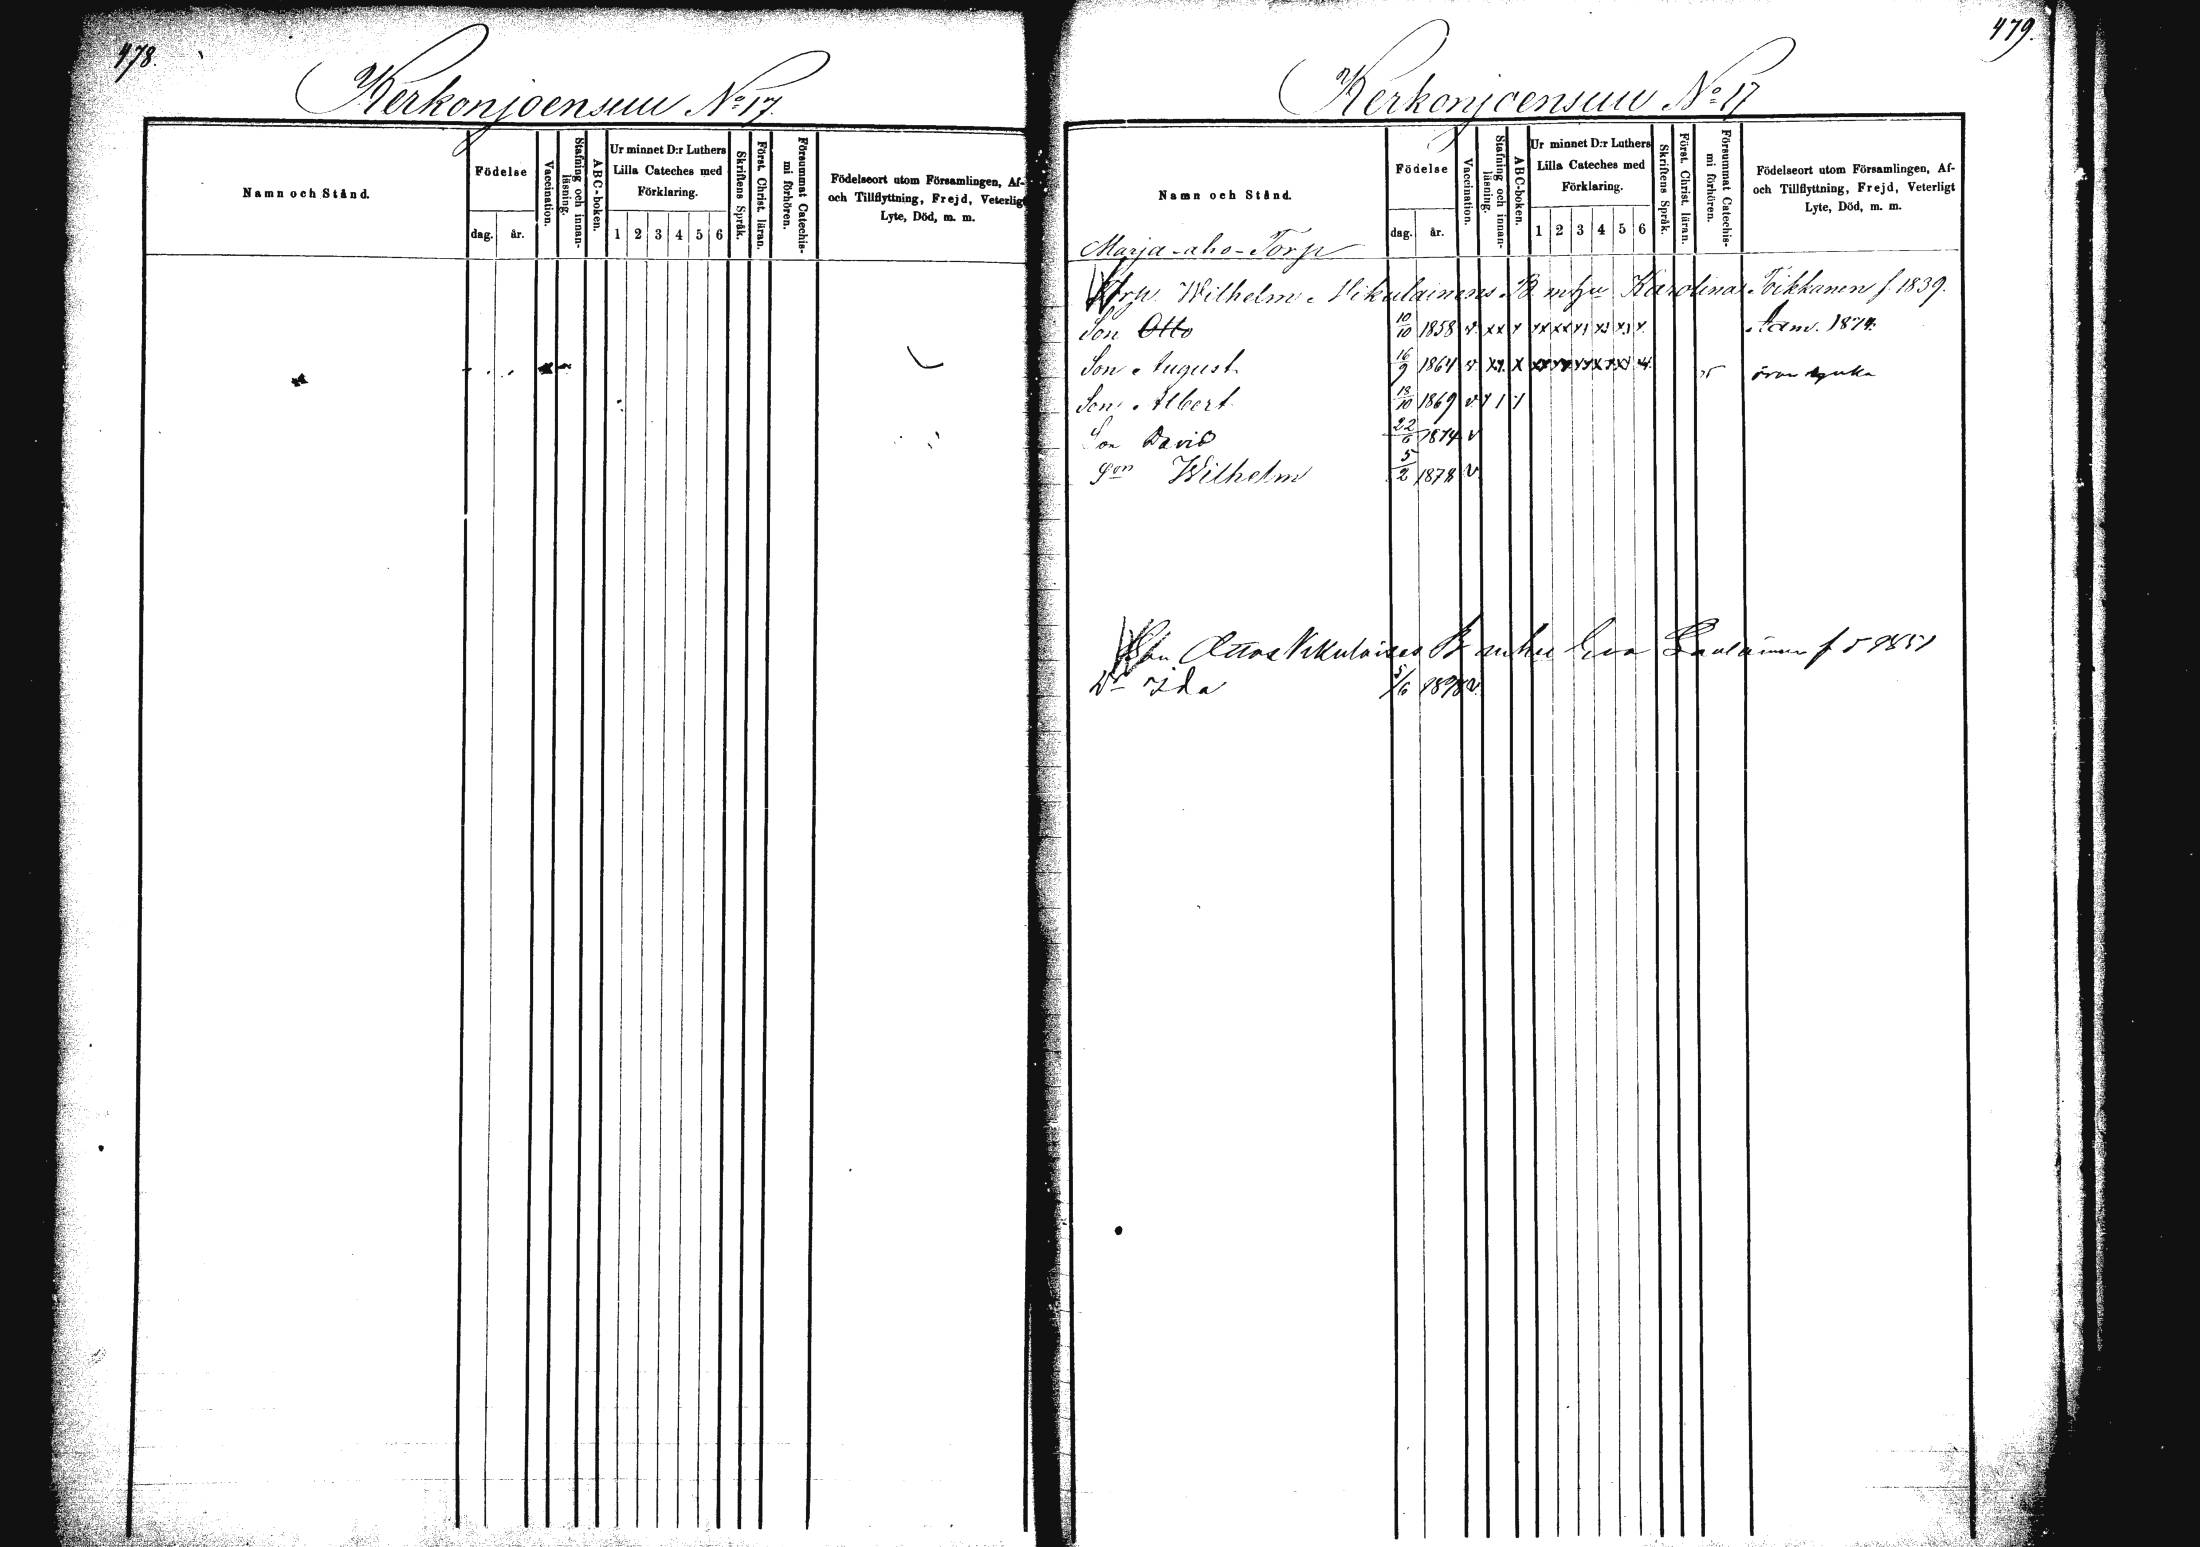 478.
Kerkonjoensuu No 17.
Namn och Stånd.
Födelse
dag.
år.
Vaccination.
Stafning och innan-
läsning.
ABC-boken.
Ur minnet D:r Luthers
Lilla Cateches med
Förklaring.
1 2 3 4 5 6
Skriftens Språk.
Först. Christ. läran.
Försummat Catechis-
mi förhören.
Födelseort utom Församlingen, Af-
och Tillflyttning, Frejd, Veterligt
Lyte, Död, m. m.
479.
Kerkonjoensuu No 17
Namn och Stånd.
Födelse
dag.
år.
Vaccination.
Stafning och innan-
läsning.
ABC-boken.
Ur minnet D:r Luthers
Lilla Cateches med
Förklaring.
1 2 3 4 5 6
Skriftens Språk.
Först. Christ. läran.
Försummat Catechis-
mi förhören.
Födelseort utom Församlingen, Af-
och Tillflyttning, Frejd, Veterligt
Lyte, Död, m. m.
Marja-aho-Torp
Torp. Wilhelm Nikulainens B m hu Karolina Toikkanen f. 1839.
Son Otto 10/10 1858 v. Adm. 1874.
Son August 16/9 1864 v.
Son Albert 18/10 1869 v
Son David 22/6 1874 v
Son Wilhelm 5/2 1878 v
Son Ottos Nikulaises B m hu Eva
Dr Ida 5/6 1878 v.